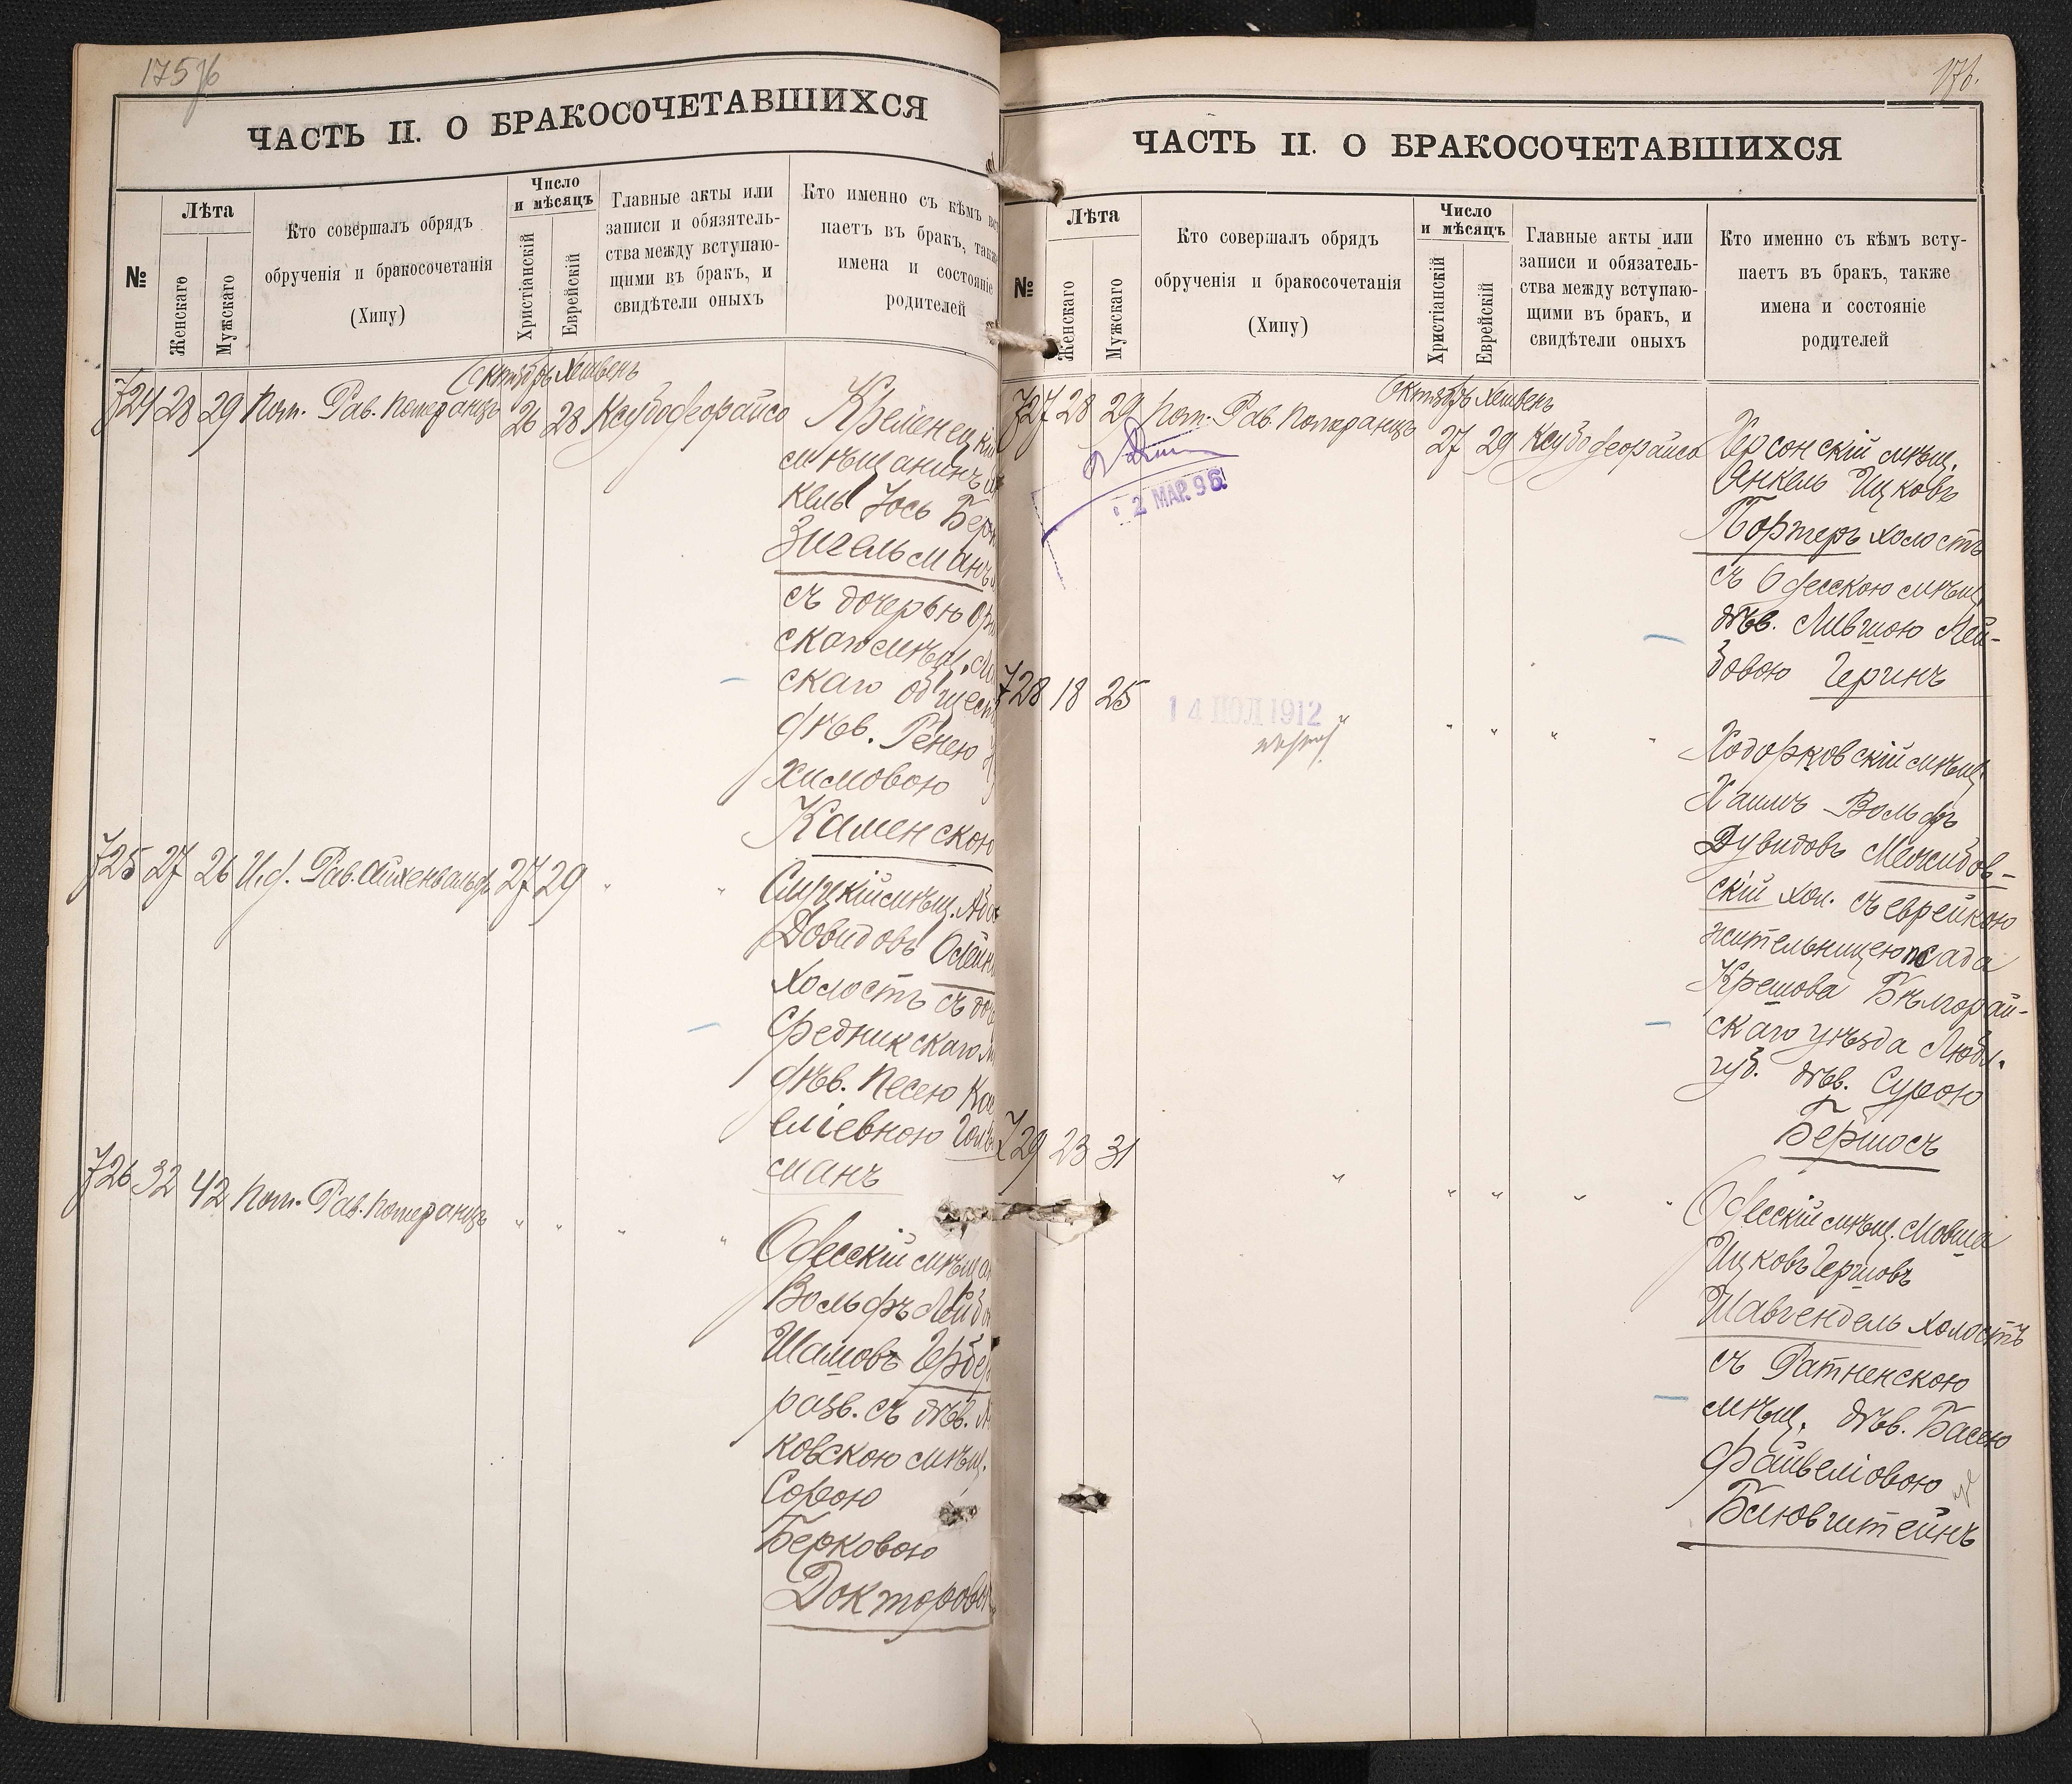 175 об
ЧАСТЬ II. О БРАКОСОЧЕТАВШИХСЯ
№
Лѣта
Женскаго
Мужскаго
Кто совершалъ обрядъ
обрученія и бракосочетанія
(Хипу)
Число
и мѣсяцъ
Христіанскій
Еврейскій
Главные акты или
записи и обязятель-
ства между вступаю-
щими въ бракъ, и
свидѣтели оныхъ
Кто именно съ кѣмъ всту
паетъ въ бракъ, также
имена и состояніе
родителей
Октябрь Хешвень
724 28 29 Пом. Рав. Померанцъ 26 28 Ксубо деорайсо
Кременецкій
мѣщанинъ
кель Іось Берк
Зигельманъ
съ дочерью
скаго мѣщ.
скаго общест
дѣв. Генею
химовою
Каменскою
725 27 26 И.д. Рав. Айхенвальдъ 27 29 " "
Слуцкій мѣщ.
Довидовъ Олейн
холостъ съ доч
Средникскаго
дѣв. Песею
еліевною Гольд
манъ
726 32 42 Пом. Рав. Померанцъ " " " "
Одесскій мѣща
Вольфъ Лейбо
Шамовъ Гербер
разв. съ дѣв.
ковскою мѣщ.
Сорою
Берковою
Докторов
176.
ЧАСТЬ II. О БРАКОСОЧЕТАВШИХСЯ
№
Лѣта
Женскаго
Мужскаго
Кто совершалъ обрядъ
обрученія и бракосочетанія
(Хипу)
Число
и мѣсяцъ
Христіанскій
Еврейскій
Главные акты или
записи и обязатель-
ства между вступаю-
щими въ бракъ, и
свидѣтели оныхъ
Кто именно съ кѣмъ всту-
паетъ въ бракъ, также
имена и состояніе
родителей
Октябрь Хешвень
727 28 29 Пом. Рав. Померанцъ 27 29 Ксубо деорайсо
2 МАР. 96
Херсонскій мѣщ.
Янкель Ицковъ
Портеръ холостъ
съ Одесскою мѣщ.
дѣв. Лившою Лей-
бовою Геринъ
728 18 25 " " " " "
14 ІЮЛ 1912
Ходорковскій мѣщ.
Хаимъ Вольфъ
Дувидовъ Межибов-
скій хол. съ еврейкою
жительницею посада
Крешова Бѣлгорай-
скаго уѣзда Любл.
губ. дѣв. Сурою
Бершосъ
729 23 31 " " " " "
Одесскій мѣщ. Мовша
Ицковъ Гершовъ
Шавгендель холостъ
съ Ратненскою
мѣщ. дѣв. Басею
Файвеліовою
Блювштейнъ